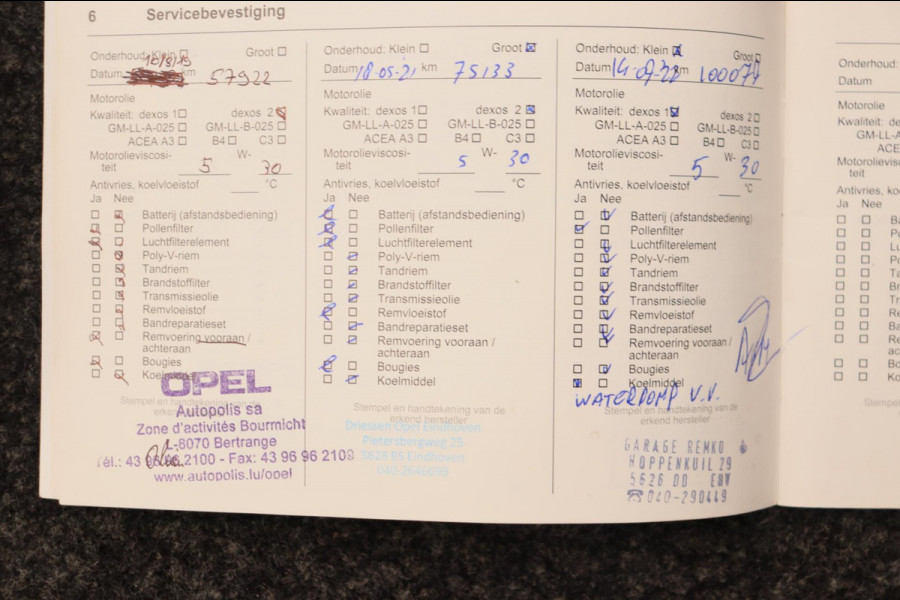 6 Servicebevestiging
Onderhoud: Klein Groot
10/8/19
Datum km 57922
Motorolie
Kwaliteit: dexos 1 dexos 2
GM-LL-A-025 GM-LL-B-025
ACEA A3 B4 C3
Motorolieviscosi- W-
teit 5 30
Antivries, koelvloeistof °C
Ja Nee
Batterij (afstandsbediening)
Pollenfilter
Luchtfilterelement
Poly-V-riem
Tandriem
Brandstoffilter
Transmissieolie
Remvloeistof
Bandreparatieset
Remvoering vooraan /
achteraan
Bougies
Koelmiddel
OPEL
Autopolis sa
Zone d'activités Bourmicht
L-8070 Bertrange
Tél.: 43 96 96 2100 - Fax: 43 96 96 2109
www.autopolis.lu/opel
Onderhoud: Klein Groot
Datum 18-05-21 km 75133
Motorolie
Kwaliteit: dexos 1 dexos 2
GM-LL-A-025 GM-LL-B-025
ACEA A3 B4 C3
Motorolieviscosi- W-
teit 5 30
Antivries, koelvloeistof °C
Ja Nee
Batterij (afstandsbediening)
Pollenfilter
Luchtfilterelement
Poly-V-riem
Tandriem
Brandstoffilter
Transmissieolie
Remvloeistof
Bandreparatieset
Remvoering vooraan /
achteraan
Bougies
Koelmiddel
Stempel en handtekening van de
erkend hersteller
Driessen Opel Eindhoven
Pietersbergweg 25
Eindhoven
Onderhoud: Klein Groot
Datum km 100077
Motorolie
Kwaliteit: dexos 1 dexos 2
GM-LL-A-025 GM-LL-B-025
ACEA A3 B4 C3
Motorolieviscosi- W-
teit 5 30
Antivries, koelvloeistof °C
Ja Nee
Batterij (afstandsbediening)
Pollenfilter
Luchtfilterelement
Poly-V-riem
Tandriem
Brandstoffilter
Transmissieolie
Remvloeistof
Bandreparatieset
Remvoering vooraan /
achteraan
Bougies
Koelmiddel
WATERPOMP V.V.
Stempel en handtekening van de
erkend hersteller
GARAGE REMKO
HOPPENKUIL 29
5626 DD EHV
040-290449
Onderhoud:
Datum
Motorolie
Kwaliteit: de
GM-LL-A
ACE
Motorolievis
teit
Antivries, koe
Ja Nee